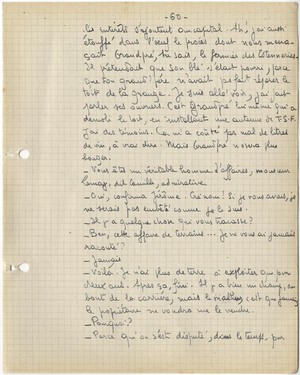 - 60 -
les intérêts s'ajoutent au capital. Ah, j'ai aussi
étouffé dans l'œuf le procès dont nous mena-
çait Grandpré, tu sais, le fermier des
Il prétendait que son blé s'était pourri parce
que ton grand-père n'avait pas fait réparer le
toit de la grange. Je suis allé voir, j'ai fait
parler ses ouvriers. C'est Grandpré lui-même qui a
démoli le toit, en installant une antenne de T.S.F.
J'ai des témoins. Ça m'a coûté pas mal de litres
de vin, à vrai dire. Mais Grandpré n'osera plus
bouger.
- Vous êtes un véritable homme d'affaires, monsieur
dit Camille, admirative.
- Oui, confirma Jérôme. Cré nom! Si je vous avais, je
ne serais pas embêté comme je le suis.
- Il y a quelque chose qui vous tracasse?
- Ben, cette affaire de terrains... Je ne vous ai jamais
raconté?
- Jamais
- Voilà. Je n'ai plus de terre à exploiter que pour
deux ans. Après ça, fini. Il y a bien un champ, au
bout de la carrière, mais le malheur c'est que jamais
le propriétaire ne voudra me le vendre.
- Pourquoi?
- Parce qu'on s'est disputé, dans le temps, pour